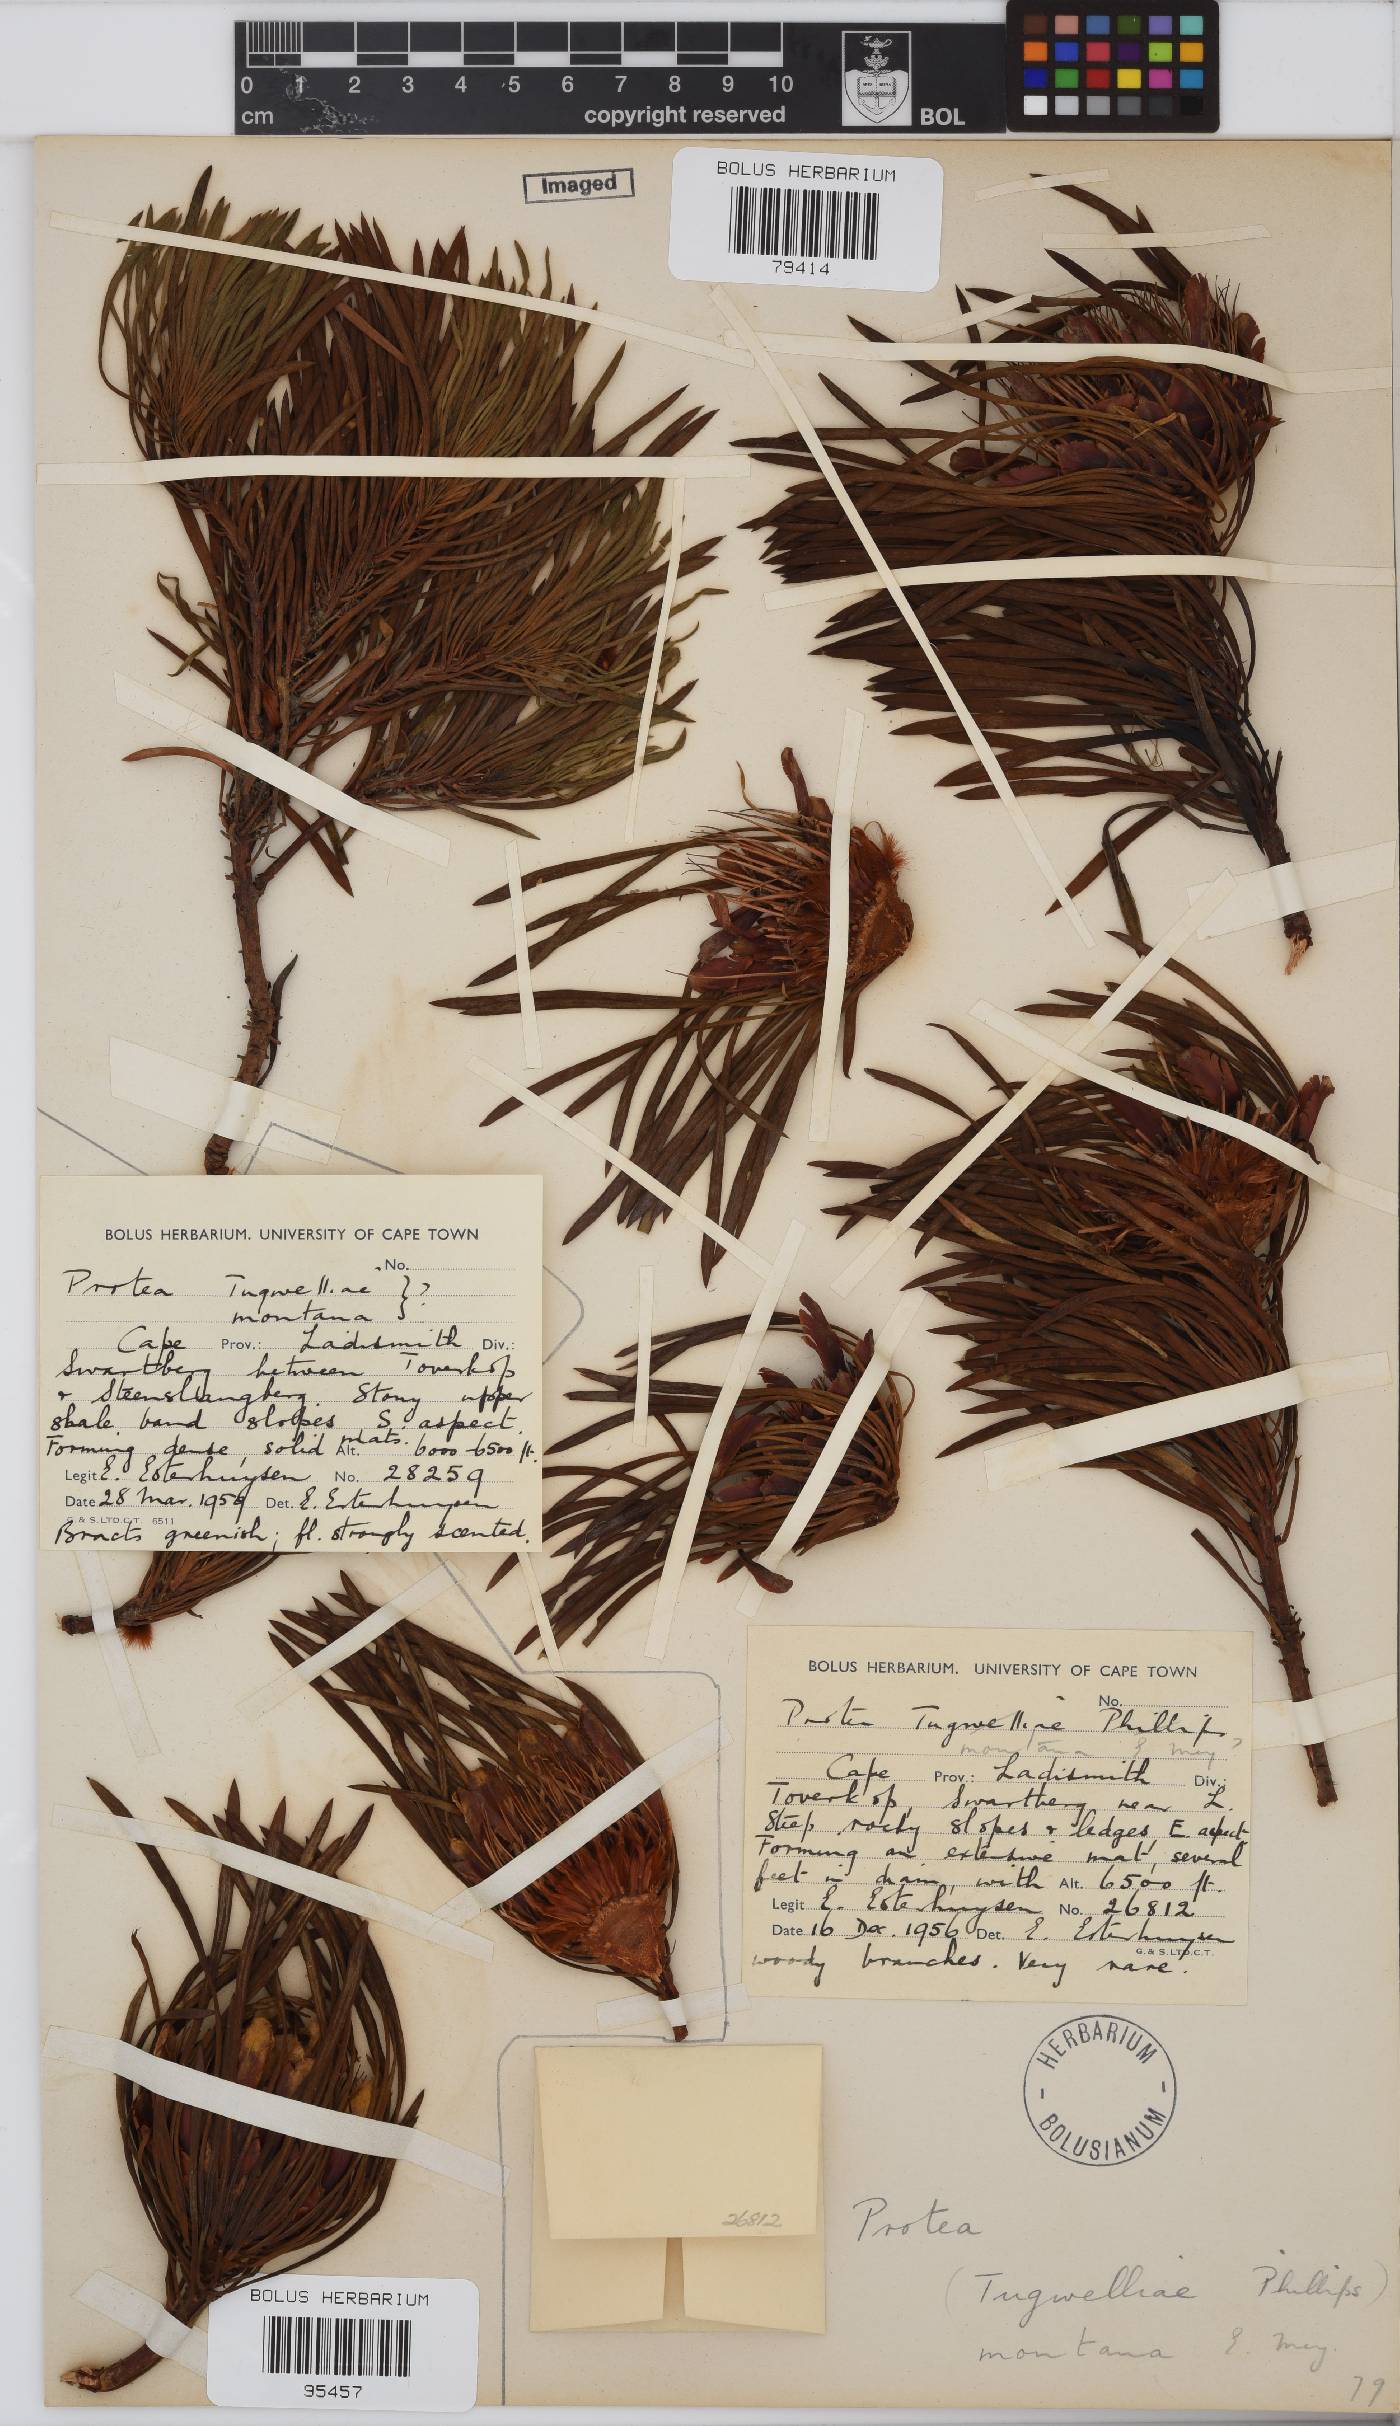 0 1 2 3 4 5 6 7 8 9 10
cm copyright reserved BOL
Imaged
BOLUS HERBARIUM
79414
BOLUS HERBARIUM. UNIVERSITY OF CAPE TOWN
No.
Protea Tugwelliae } ?
montana }
Cape Prov.: Ladismith Div.:
Swartberg between Toverkop
& Steenslangberg. Stony upper
shale band slopes S. aspect.
Forming dense, solid mats. Alt. 6000-6500 ft.
Legit E. Esterhuysen No. 28259
Date 28 Mar. 1959 Det. E. Esterhuysen
G. & S. LTD. C.T. 6511
Bracts greenish; fl. strongly scented.
BOLUS HERBARIUM. UNIVERSITY OF CAPE TOWN
No.
Protea Tugwelliae Phillips
montana E. Mey ?
Cape Prov.: Ladismith Div.:
Toverkop, Swartberg near L.
Steep rocky slopes & ledges, E aspect
Forming an extensive mat, several
feet in diam, with Alt. 6500 ft.
Legit E. Esterhuysen No. 26812
Date 16 Dec. 1956 Det. E. Esterhuysen
G. & S. LTD. C.T.
woody branches. Very rare.
HERBARIUM
- BOLUSIANUM -
26812
Protea
(Tugwelliae Phillips)
montana E. Mey.
79
BOLUS HERBARIUM
95457